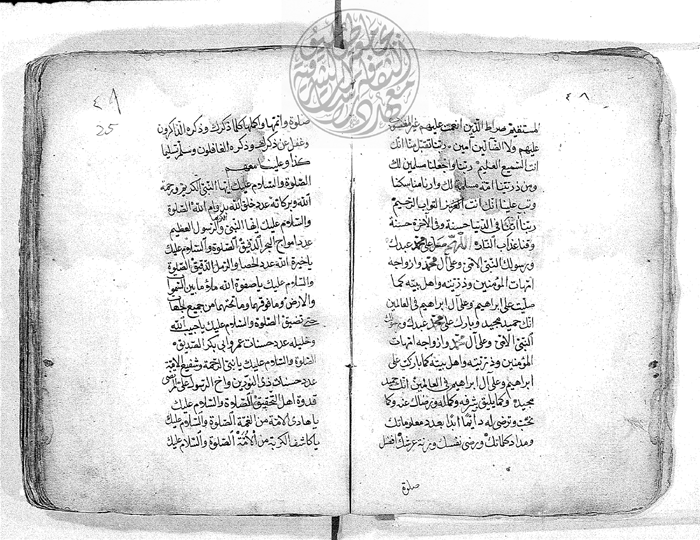 ٤٨
المستقيم صراط الذين انعمت عليهم غير المغضوب
عليهم ولا الضالين آمين ربنا تقبل منا انك
انت السميع العليم ربنا واجعلنا مسلمين لك
ومن ذريتنا امة مسلمة لك وارنا مناسكنا
وتب علينا انك انت التواب الرحيم
ربنا اتنا في الدنيا حسنة وفي الآخرة حسنة
وقنا عذاب النار اللهم صل على محمد عبدك
ورسولك النبي الامي وعلى آل محمد وازواجه
امهات المؤمنين وذريته واهل بيته كما
صليت على ابراهيم وعلى آل ابراهيم في العالمين
انك حميد مجيد وبارك على محمد عبدك ورسولك
النبي الامي وعلى آل محمد وازواجه امهات
المؤمنين وذريته واهل بيته كما باركت على
ابراهيم وعلى آل ابراهيم في العالمين انك حميد
مجيد وكما يليق بشرفه وكماله ورضاك عنه وكما
تحب وترضى له دائما ابدا بعدد معلوماتك
ومداد كلماتك ورضى نفسك وزنة عرشك افضل
صلوة
٤٩
25
صلوة واتمها واكملها كلما ذكرك وذكره الذاكرون
وغفل عن ذكرك وذكره الغافلون وسلم تسليما
كذا وعلينا معهم
الصلوة والسلام عليك ايها النبي الكريم ورحمة
الله وبركاته عدد خلق الله بدوام الله الصلوة
والسلام عليك ايها النبي والرسول العظيم
عدد امواج البحر الدقيق الصلوة والسلام عليك
يا خيرة الله عدد الحصا والرمل الدقيق الصلوة
والسلام عليك يا صفوة الله ملؤ ما بين السموات
والارض وما فوقهما وما تحتهما من جميع الجهات
تضيق الصلوة والسلام عليك يا حبيب الله
وخليله عدد حسنات عمر وابي بكر الصديق
الصلوة والسلام عليك يا نبي الرحمة وشفيع الامة
عدد حسنات ذي النورين واخ الرسول علي المرتضى
قدوة اهل التحقيق الصلوة والسلام عليك
يا هادي الامة من الغمة الصلوة والسلام عليك
يا كاشف الكربة عن الامة الصلوة والسلام عليك